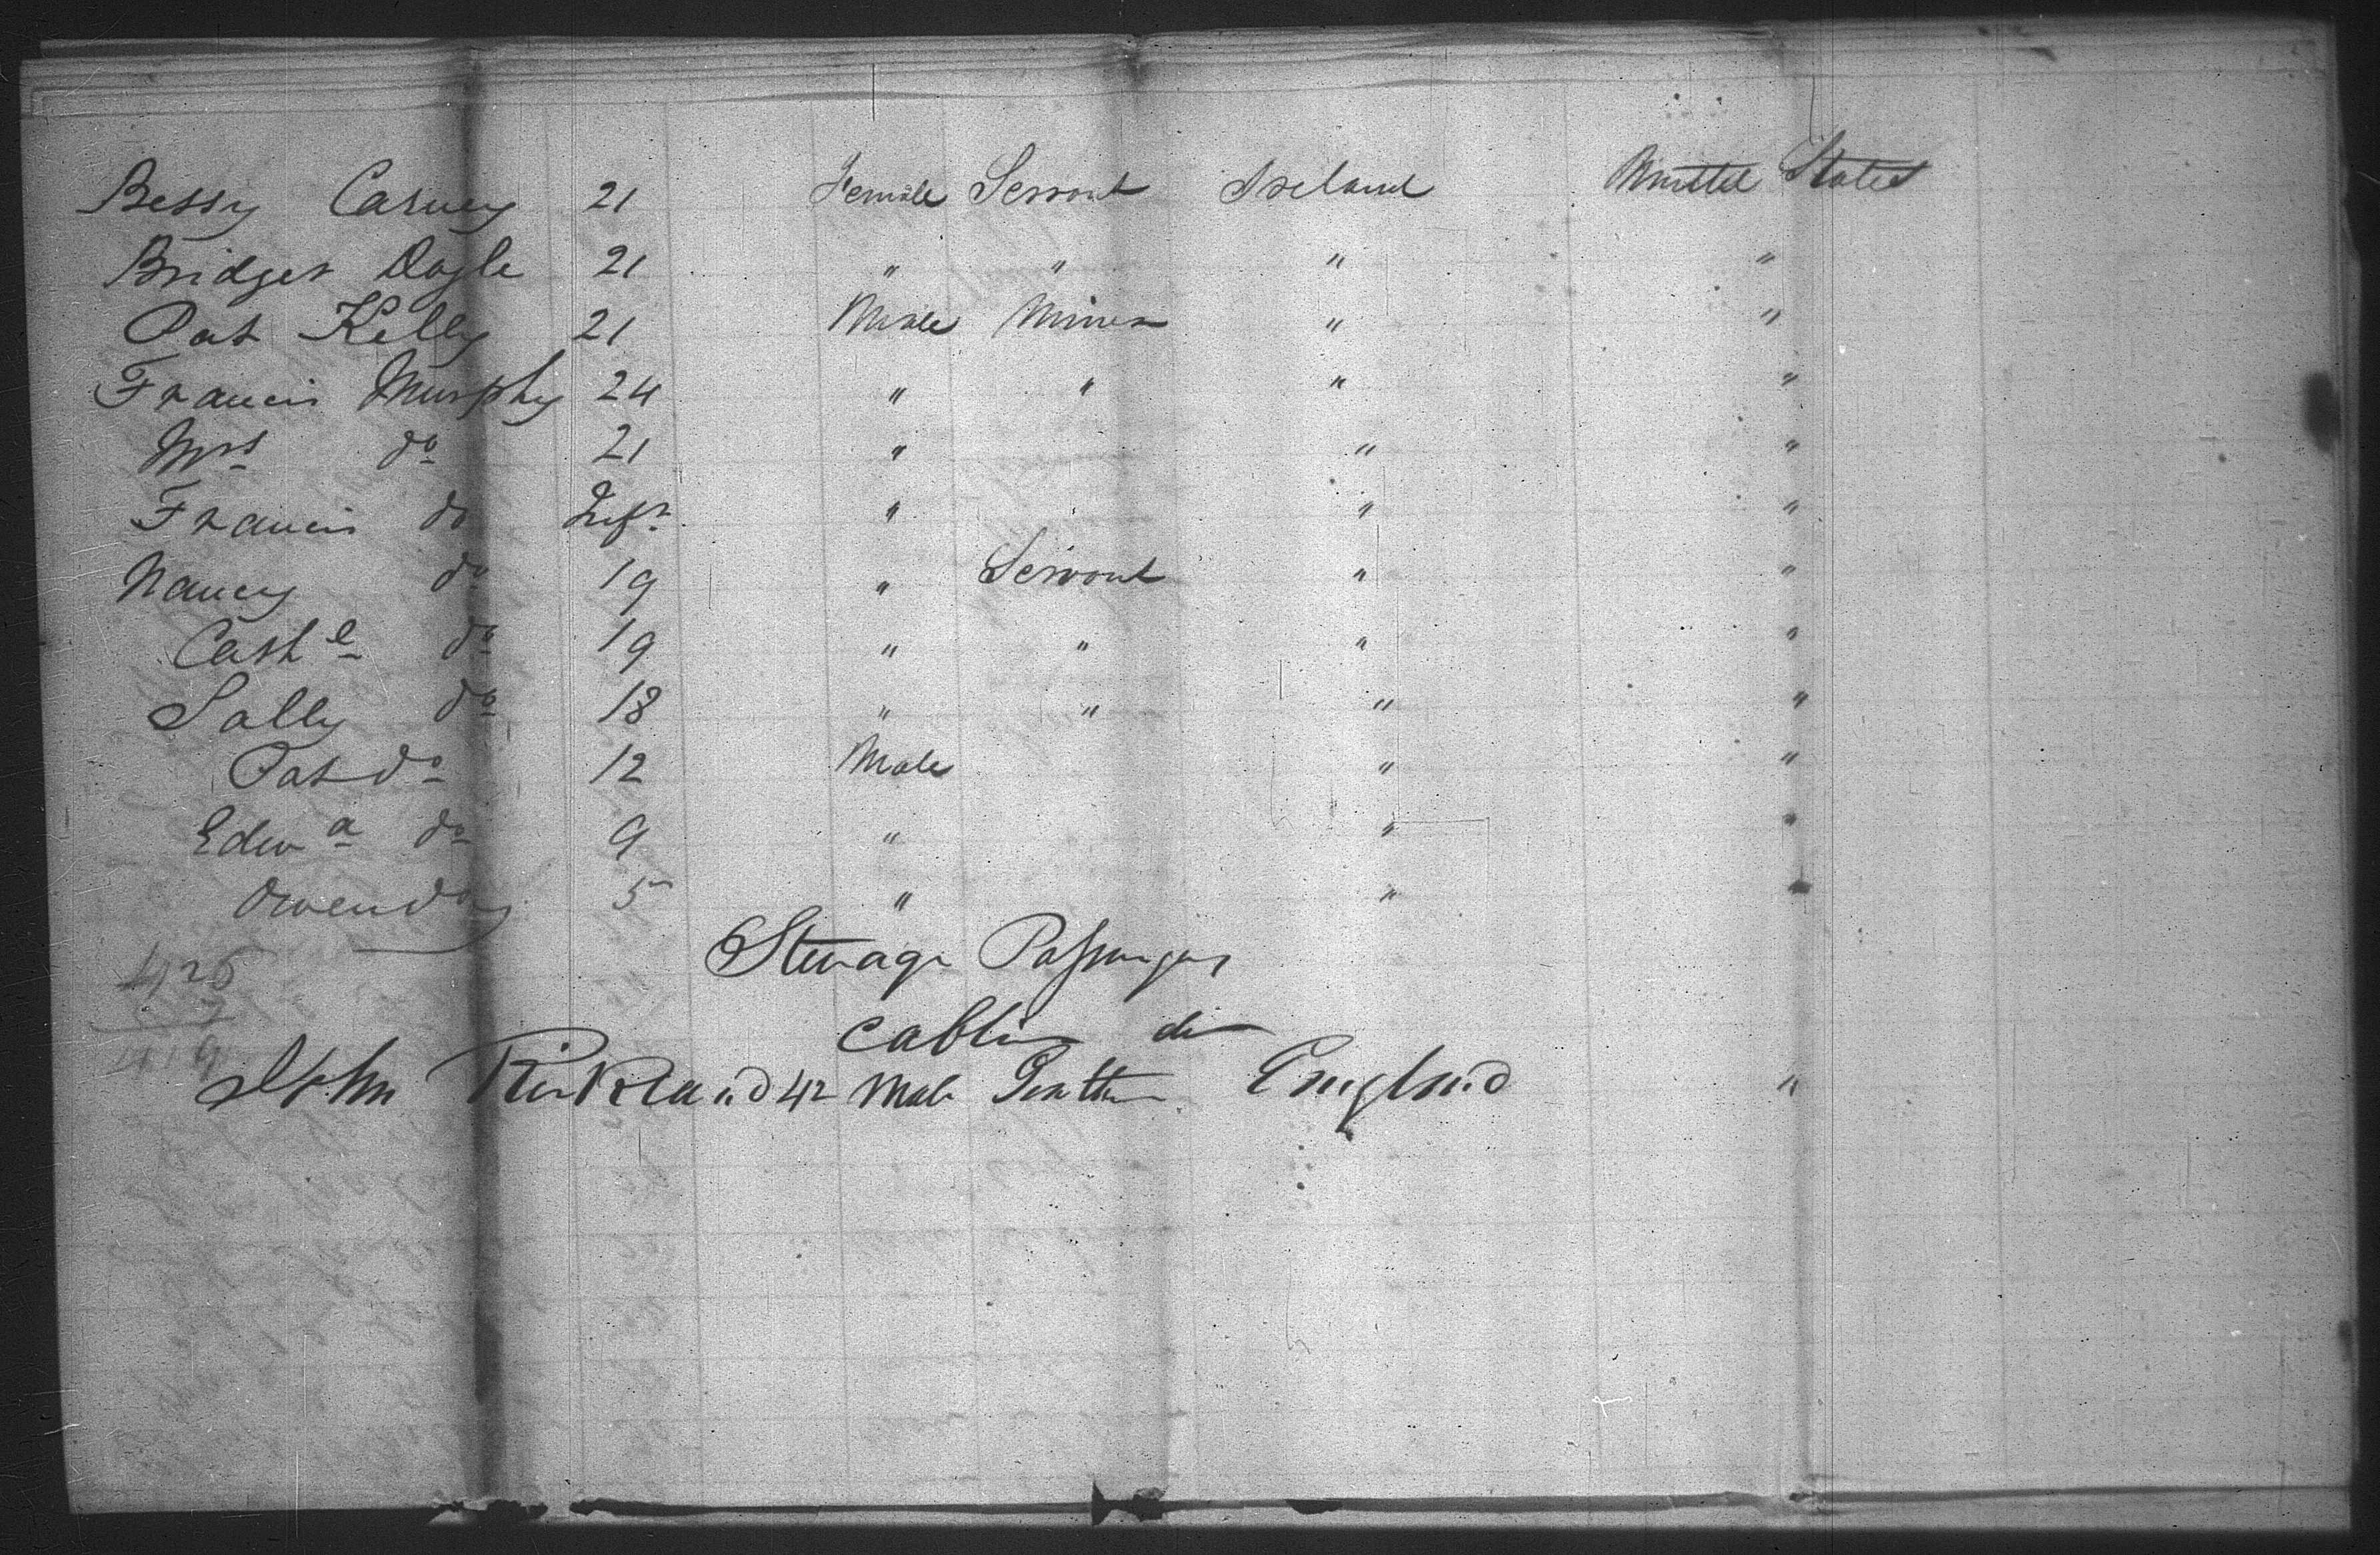 Bessy Carney 21 Female Servant Ireland United States
Bridget Doyle 21 " " " "
Pat Kelly 21 Male Miner " "
Francis Murphy 24 " " " "
Mrs do 21 " " "
Francis do Inft " " "
Nancy do 19 " Servant " "
Cathe do 19 " " " "
Sally do 18 " " " "
Pat do 12 Male " "
Edwd do 9 " " "
Owen do 5 " " "
Steerage Passengers
425
7
Cabbin do
419
John Kirkland 42 Male England "